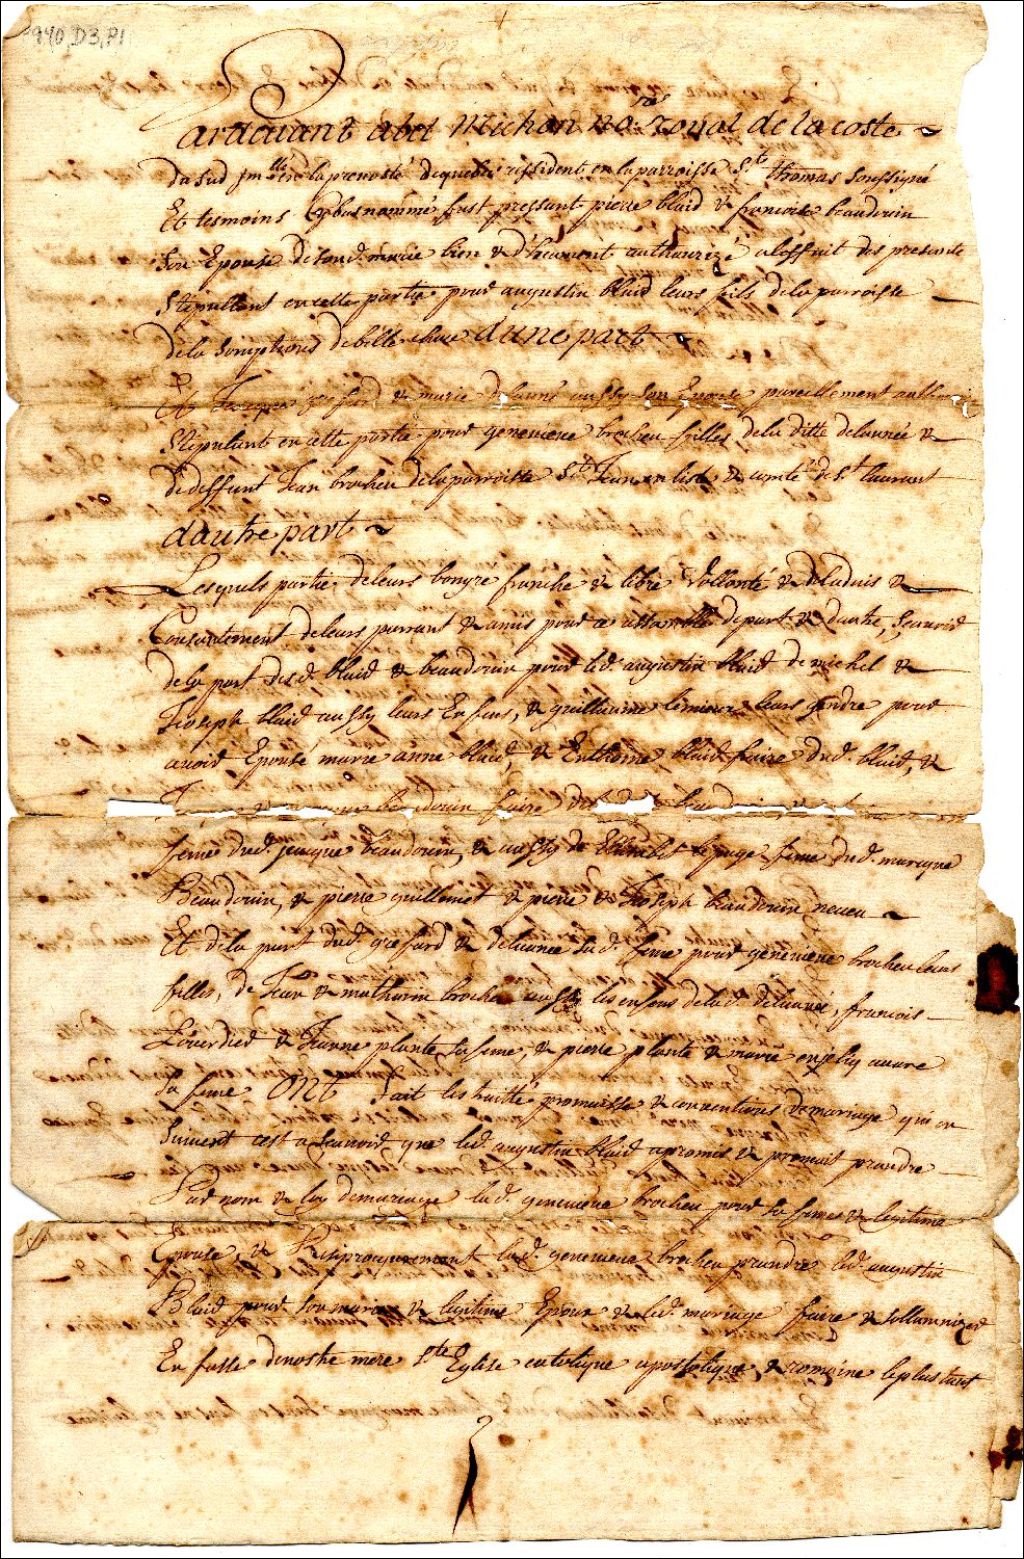 P940,D3,P1
Pardevant abel Michon no.re royal de la coste
du sud jm.lle en la prevosté de quebec ressident en la parroisse S.t thomas soussigné
Et tesmoins cy bas nommé fust pressant pierre blaid & francoise beaudouin
son Epouse de son d. marie bien & d'heument autherizé a l'effait des presante
stipullant en cette partye pour augustin blaid leurs fils de la parroisse
de la Somptions de belle chase d'une part
Et Jacques gesfard & marie delauné aussy son Epouse pareillement auth
stipulant en cette partie pour genevieve brocheu filles de la ditte delaunée &
de deffunt Jean brocheu de la parroisse S.t Jean en lisle & comté de S.t laurant
dautre part
Lesquels partie de leurs bongre franche & libre vollonté & de ladvis &
Consantement de leurs parrant & amis pour ce assemblé de part & dautre, Scavoir
de la part des d. blaid & beaudouin pour led. augustin blaid de michel &
Joseph blaid aussy leurs Enfans, & guilliaume lemieux leurs gendre pour
avoir Epousé marie anne blaid, & Enthoine blaid fraire dud. blaid, &
beaudouin fraire
feme dud. jacque beaudouin, & aussy de Elizabet lepage feme dud. marcque
Beaudouin, & pierre guillemet & pierre & Joseph beaudouin neveu
Et de la part dud. gesfard & delaunée sa d. feme pour genevieve brocheu leurs
filles, de Jean & mathurin brocheu aussy les enfans de la d. delaunée, francois
Lverdied & Jeanne plante sa feme, & pierre plante & marie
sa feme ONT Fait les traitté promaisse & conventions de mariage qui en
suivent cest a scavoir que led. augustin blaid a promis & promait prandre
Par nom & loy de mariage la d. genevieve brocheu pour sa feme & legitime
Epouse, & Resiproquement la d. genevieve brocheu prandre led. augustin
Blaid pour son marie & legitime Epoux & led. mariage faire & sollamnizer
En fasse de nostre mere S.te Eglise catolique apostolique & romaine le plus tost